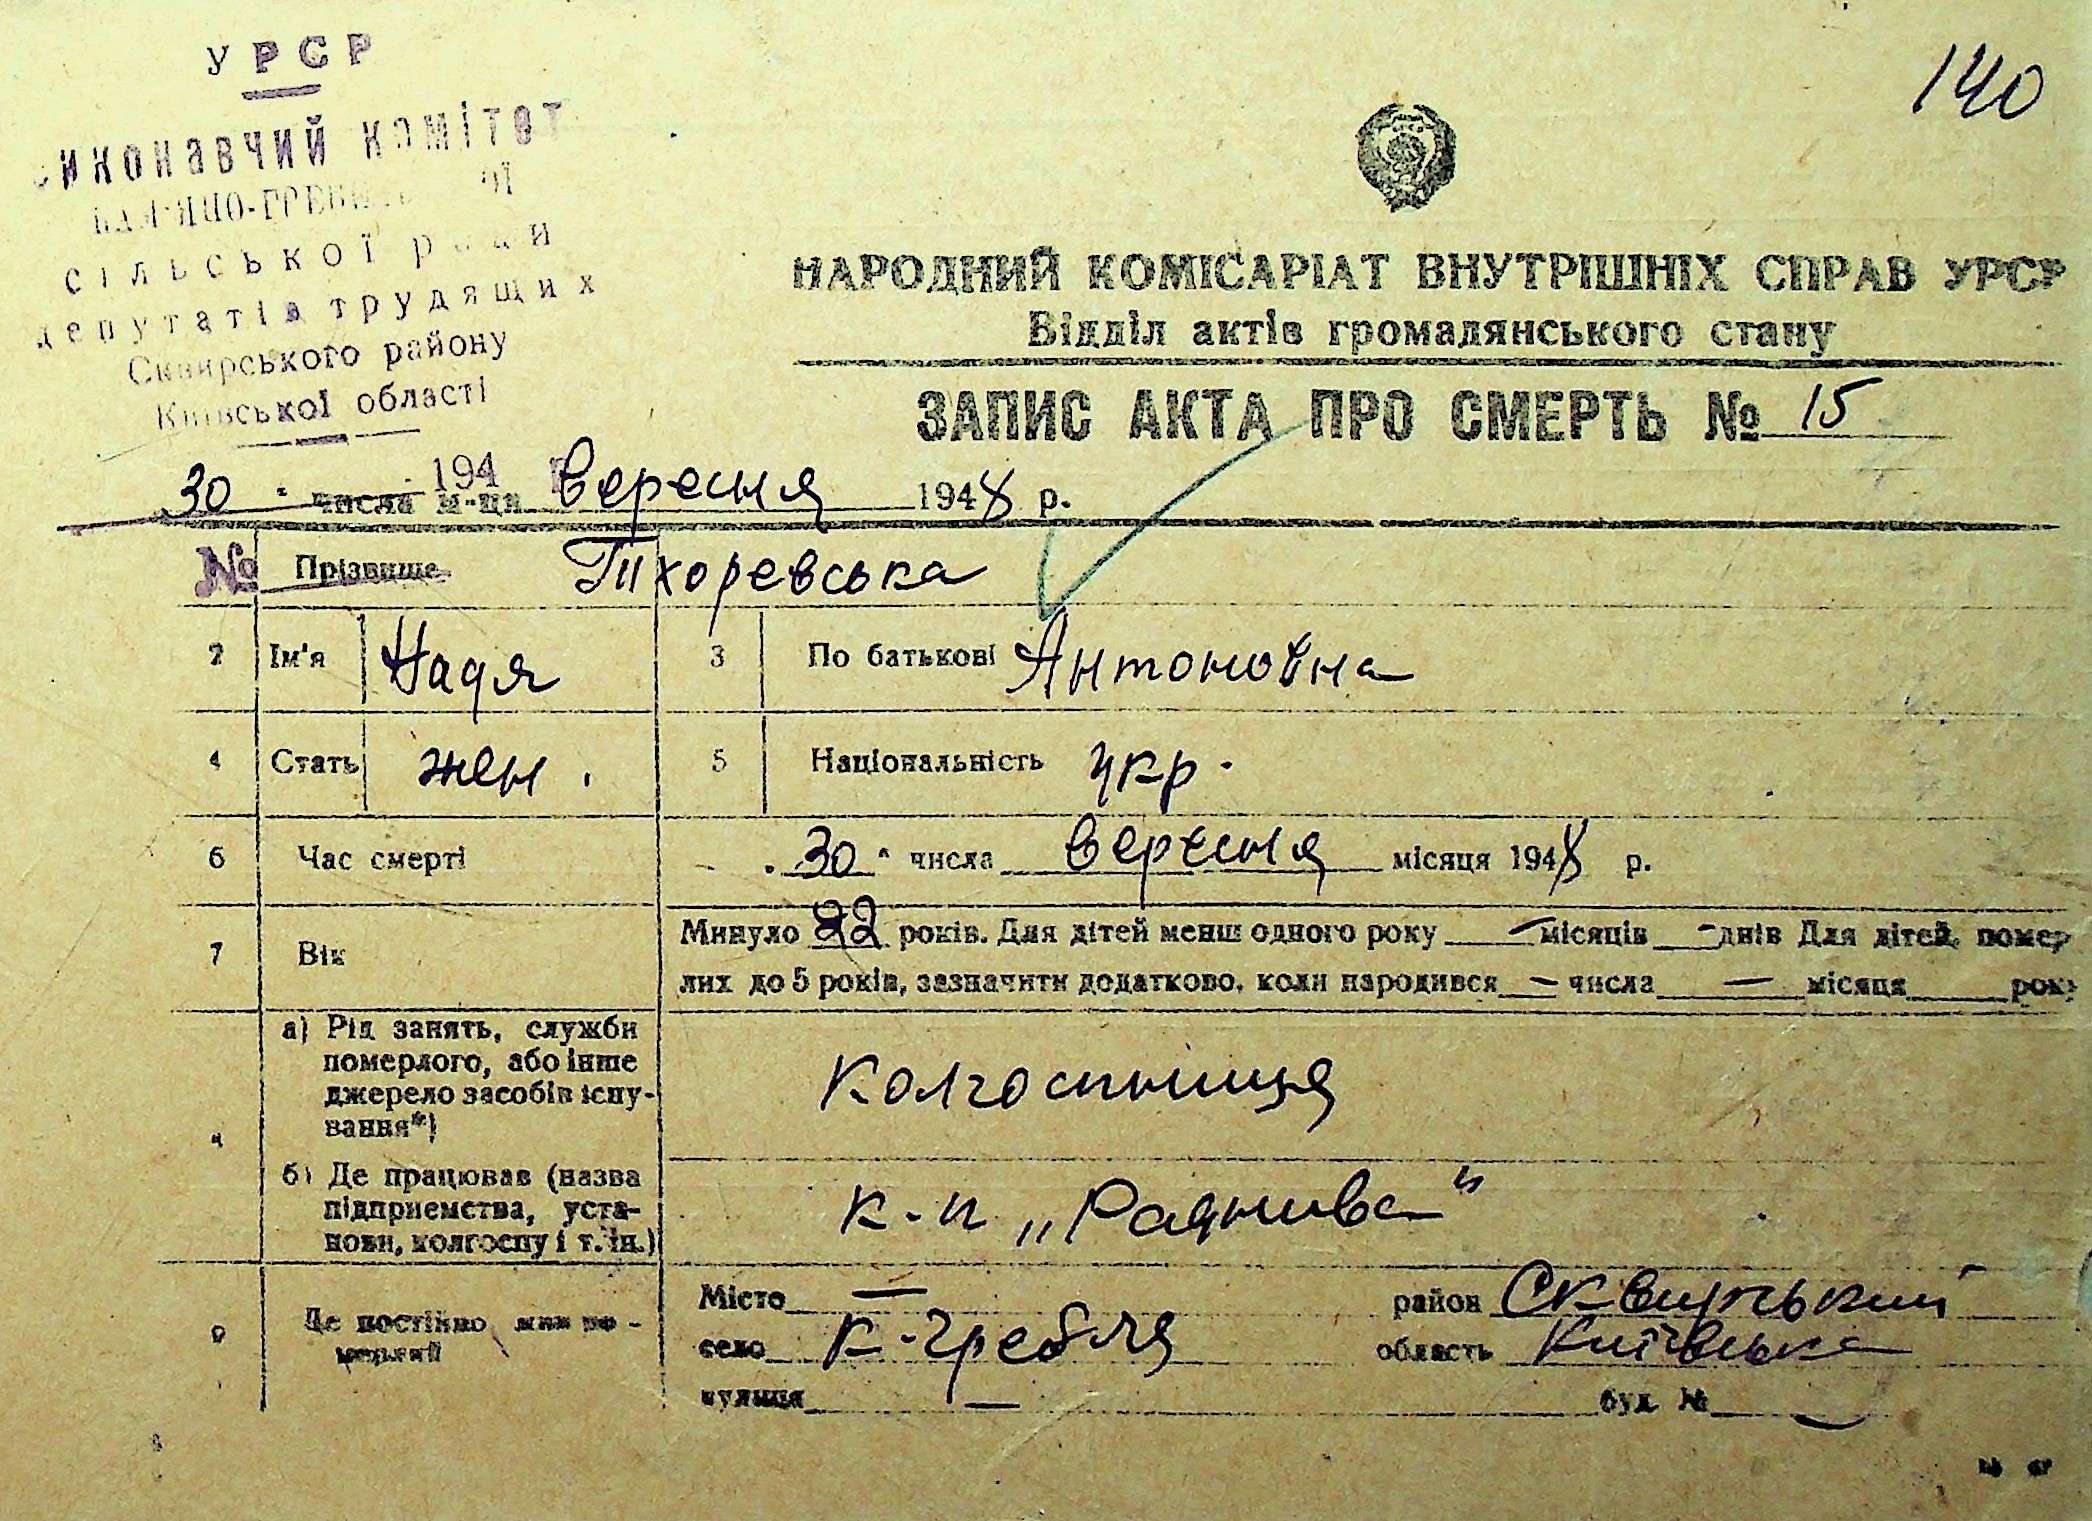 УРСР
140
виконавчий комітет
сільської ради
депутатів трудящих
Сквирського району
Київської області
194
№
НАРОДНИЙ КОМІСАРІАТ ВНУТРІШНІХ СПРАВ УРСР
Відділ актів громадянського стану
ЗАПИС АКТА ПРО СМЕРТЬ № 15
30 " числа м-ця вересня 1948 р.
Прізвище Тхоревська
2 Ім'я Надя 3 По батькові Антоновна
4 Стать жен. 5 Національність укр.
6 Час смерті 30 " числа вересня місяця 1948 р.
7 Вік Минуло 22 років. Для дітей менш одного року — місяців — днів Для дітей, помер
лих до 5 років, зазначити додатково, коли народився — числа — місяця року
а) Рід занять, служби
померлого, або інше
джерело засобів існу-
вання*)
Колгоспниця
б) Де працював (назва
підприємства, уста-
нови, колгоспу і т. ін.)
к-п „Раднива"
9 Де постійно жив по-
мерлий
Місто — район Сквирський
село К-Гребля область Київська
вулиця — буд. № —